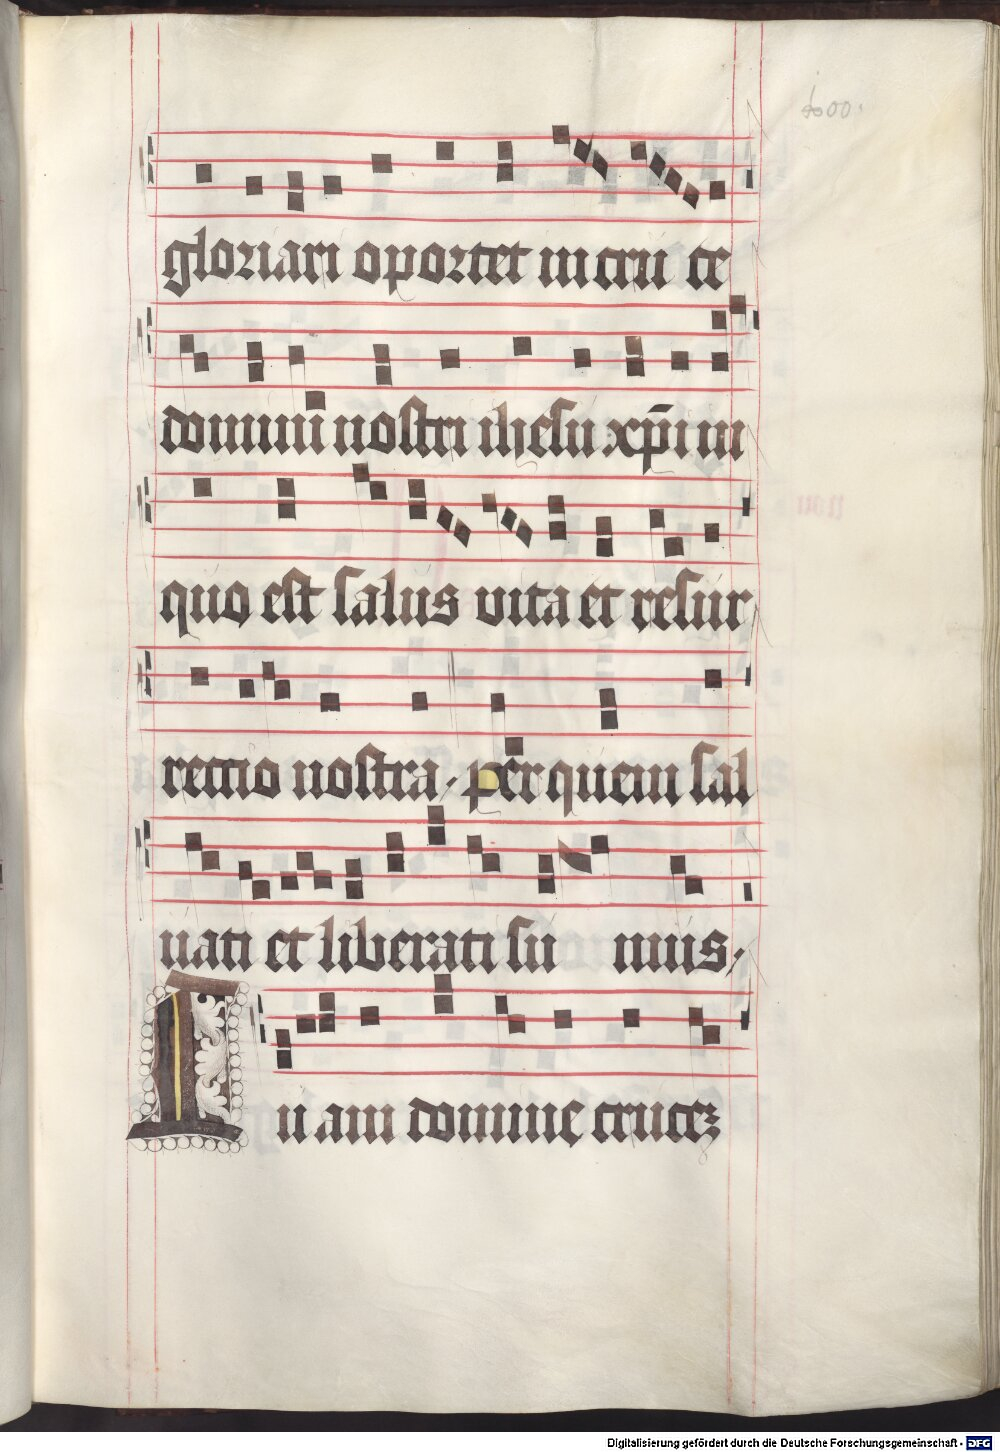 600.
gloriari oportet in cru ce
domini nostri ihesu xp̄i in
quo est salus vita et resur
rectio nostra, per quem sal
uati et liberati su mus,
Tuam domine crucez
Digitalisierung gefördert durch die Deutsche Forschungsgemeinschaft - DFG